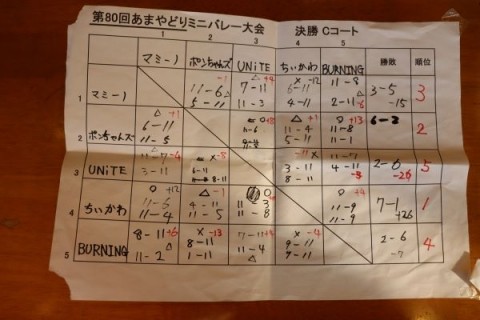 第80回あまやどりミニバレー大会 決勝 Cコート
1 2 3 4 5
マミーノ ポンちゃんズ UNiTE ちぃかわ BURNING 勝敗 順位
1 マミーノ
-1 △ +4 × -12
11-6 7-11 6-11 11-8 3-5
5-11 11-3 4-11 2-11 -15 3
2 ポンちゃんズ
○ +8 △ +1 ○ +13
6-11 11-6 11-4 11-8 6-2
11-5 5-11 11-1 2
3 UNiTE
11-7 -4 × -8
3-11 6-11 4-11 2-6
8-11 8-11 -26 5
4 ちぃかわ
○ +12 △ -1 ○ ○ +4
11-6 4-11 11-9 7-1
11-4 11-5 11-8 11-9 +26 1
5 BURNING
8-11 +6 × -13 7-11 +3 × -4
8-11 9-11 2-6
11-2 △ 1-11 11-4 △ 9-11 -7 4